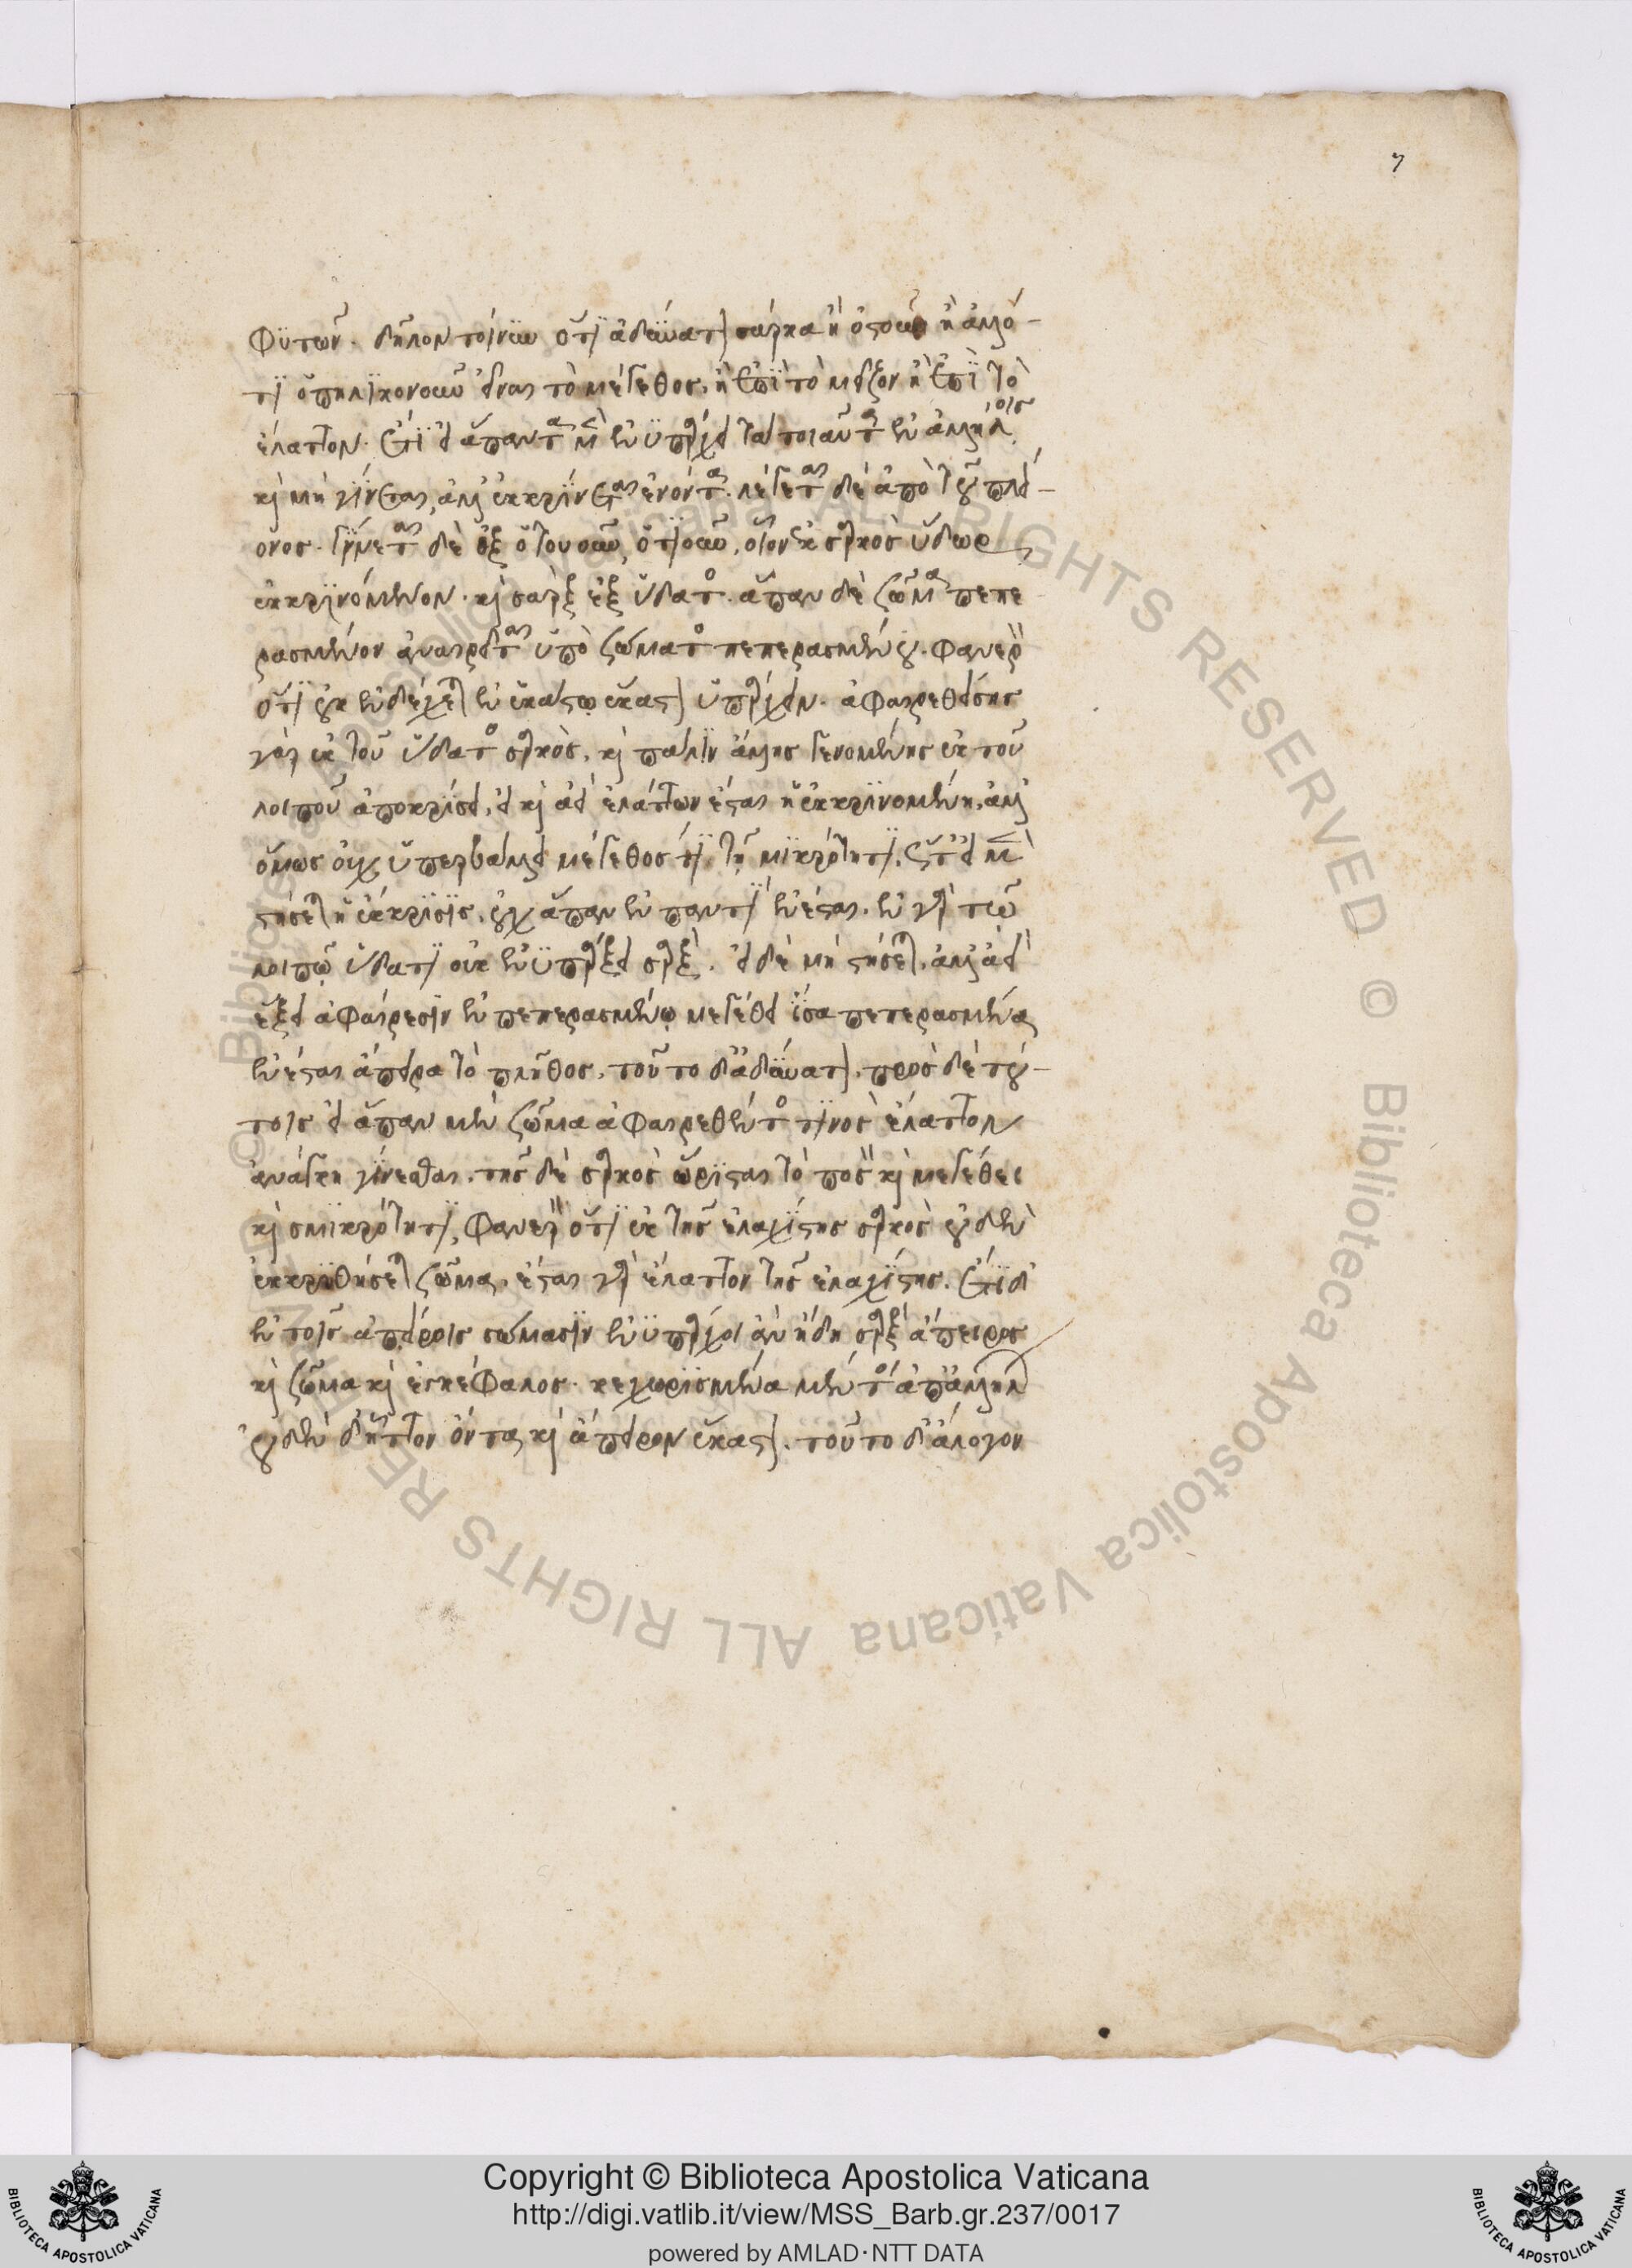 7
φυτῶν. δῆλον τοίνυν ὅτι ἀδύνατον σάρκα ἢ ὀστοῦν ἢ ἄλλό-
τι ὁπηλικονοῦν εἶναι τὸ μέγεθος, ἢ ἐπὶ τὸ μεῖζον ἢ ἐπὶ τὸ
ἔλαττον. ἔτι εἰ ἅπαντα μὲν ἐνυπάρχει τὰ τοιαῦτα ἐν ἀλλήλοις
καὶ μὴ γίνεται, ἀλλ' ἐκκρίνεται ἐνόντα. λέγεται δὲ ἀπὸ τοῦ πλεί-
ονος. γίνεται δὲ ἐξ ὁτουοῦν ὁτιοῦν, οἷον ἐκ σαρκὸς ὕδωρ
ἐκκρινόμενον. καὶ σὰρξ ἐξ ὕδατος. ἅπαν δὲ σῶμα πεπε
ρασμένον ἀναιρεῖται ὑπὸ σώματος πεπερασμένου. φανερὸν
ὅτι οὐκ ἐνδέχεται ἐν ἑκάστῳ ἕκαστον ὑπάρχειν. ἀφαιρεθείσης
γὰρ ἐκ τοῦ ὕδατος σαρκὸς, καὶ πάλιν ἄλλης γενομένης ἐκ τοῦ
λοιποῦ ἀποκρίσει, εἰ καὶ ἀεὶ ἐλάττων ἔσται ἡ ἐκκρινομένη, ἀλλ'
ὅμως οὐχ ὑπερβαλεῖ μέγεθός τι τῇ μικρότητι. ὥστ' εἰ μὲν
στήσεται ἡ ἔκκρισις, οὐχ ἅπαν ἐν παντὶ ἐνέσται. ἐν γὰρ τῷ
λοιπῷ ὕδατι οὐκ ἐνυπάρξει σάρξ. εἰ δὲ μὴ στήσεται, ἀλλ' ἀεὶ
ἕξει ἀφαίρεσιν ἐν πεπερασμένῳ μεγέθει ἴσα πεπερασμένα
ἐνέσται ἄπειρα τὸ πλῆθος, τοῦτο δ' ἀδύνατον. πρὸς δὲ τού-
τοις εἰ ἅπαν μὲν σῶμα ἀφαιρεθέντος τινὸς ἔλαττον
ἀνάγκη γίνεσθαι. τῆς δὲ σαρκὸς ὥρισται τὸ ποσὸν καὶ μεγέθει
καὶ σμικρότητι, φανερὸν ὅτι ἐκ τῆς ἐλαχίστης σαρκὸς οὐδὲν
ἐκκριθήσεται σῶμα. ἔσται γὰρ ἔλαττον τῆς ἐλαχίστης. ἔτι δ'
ἐν τοῖς ἀπείροις σώμασιν ἐνυπάρχοι ἂν ἤδη σὰρξ ἄπειρος
καὶ σῶμα καὶ ἐγκέφαλος. κεχωρισμένα μέντοι ἀπ' ἀλλήλων
οὐδὲν δ' ἧττον ὄντα καὶ ἄπειρον ἕκαστον. τοῦτο δ' ἄλογον
Copyright © Biblioteca Apostolica Vaticana
http://digi.vatlib.it/view/MSS_Barb.gr.237/0017
powered by AMLAD·NTT DATA